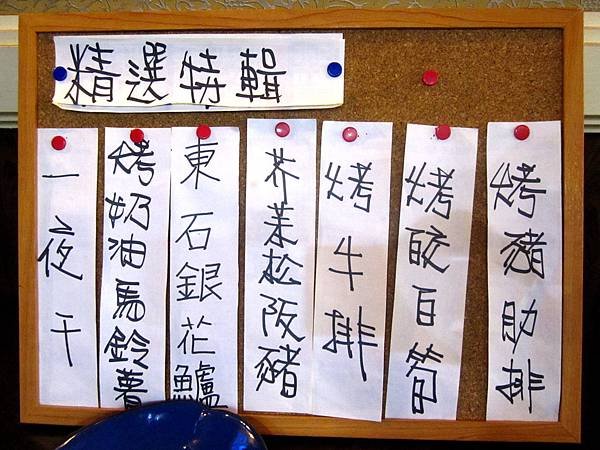 精選特輯
烤豬肋排
烤皎白筍
烤牛排
芥茉松阪豬
東石銀花鱸
烤奶油馬鈴薯
一夜干